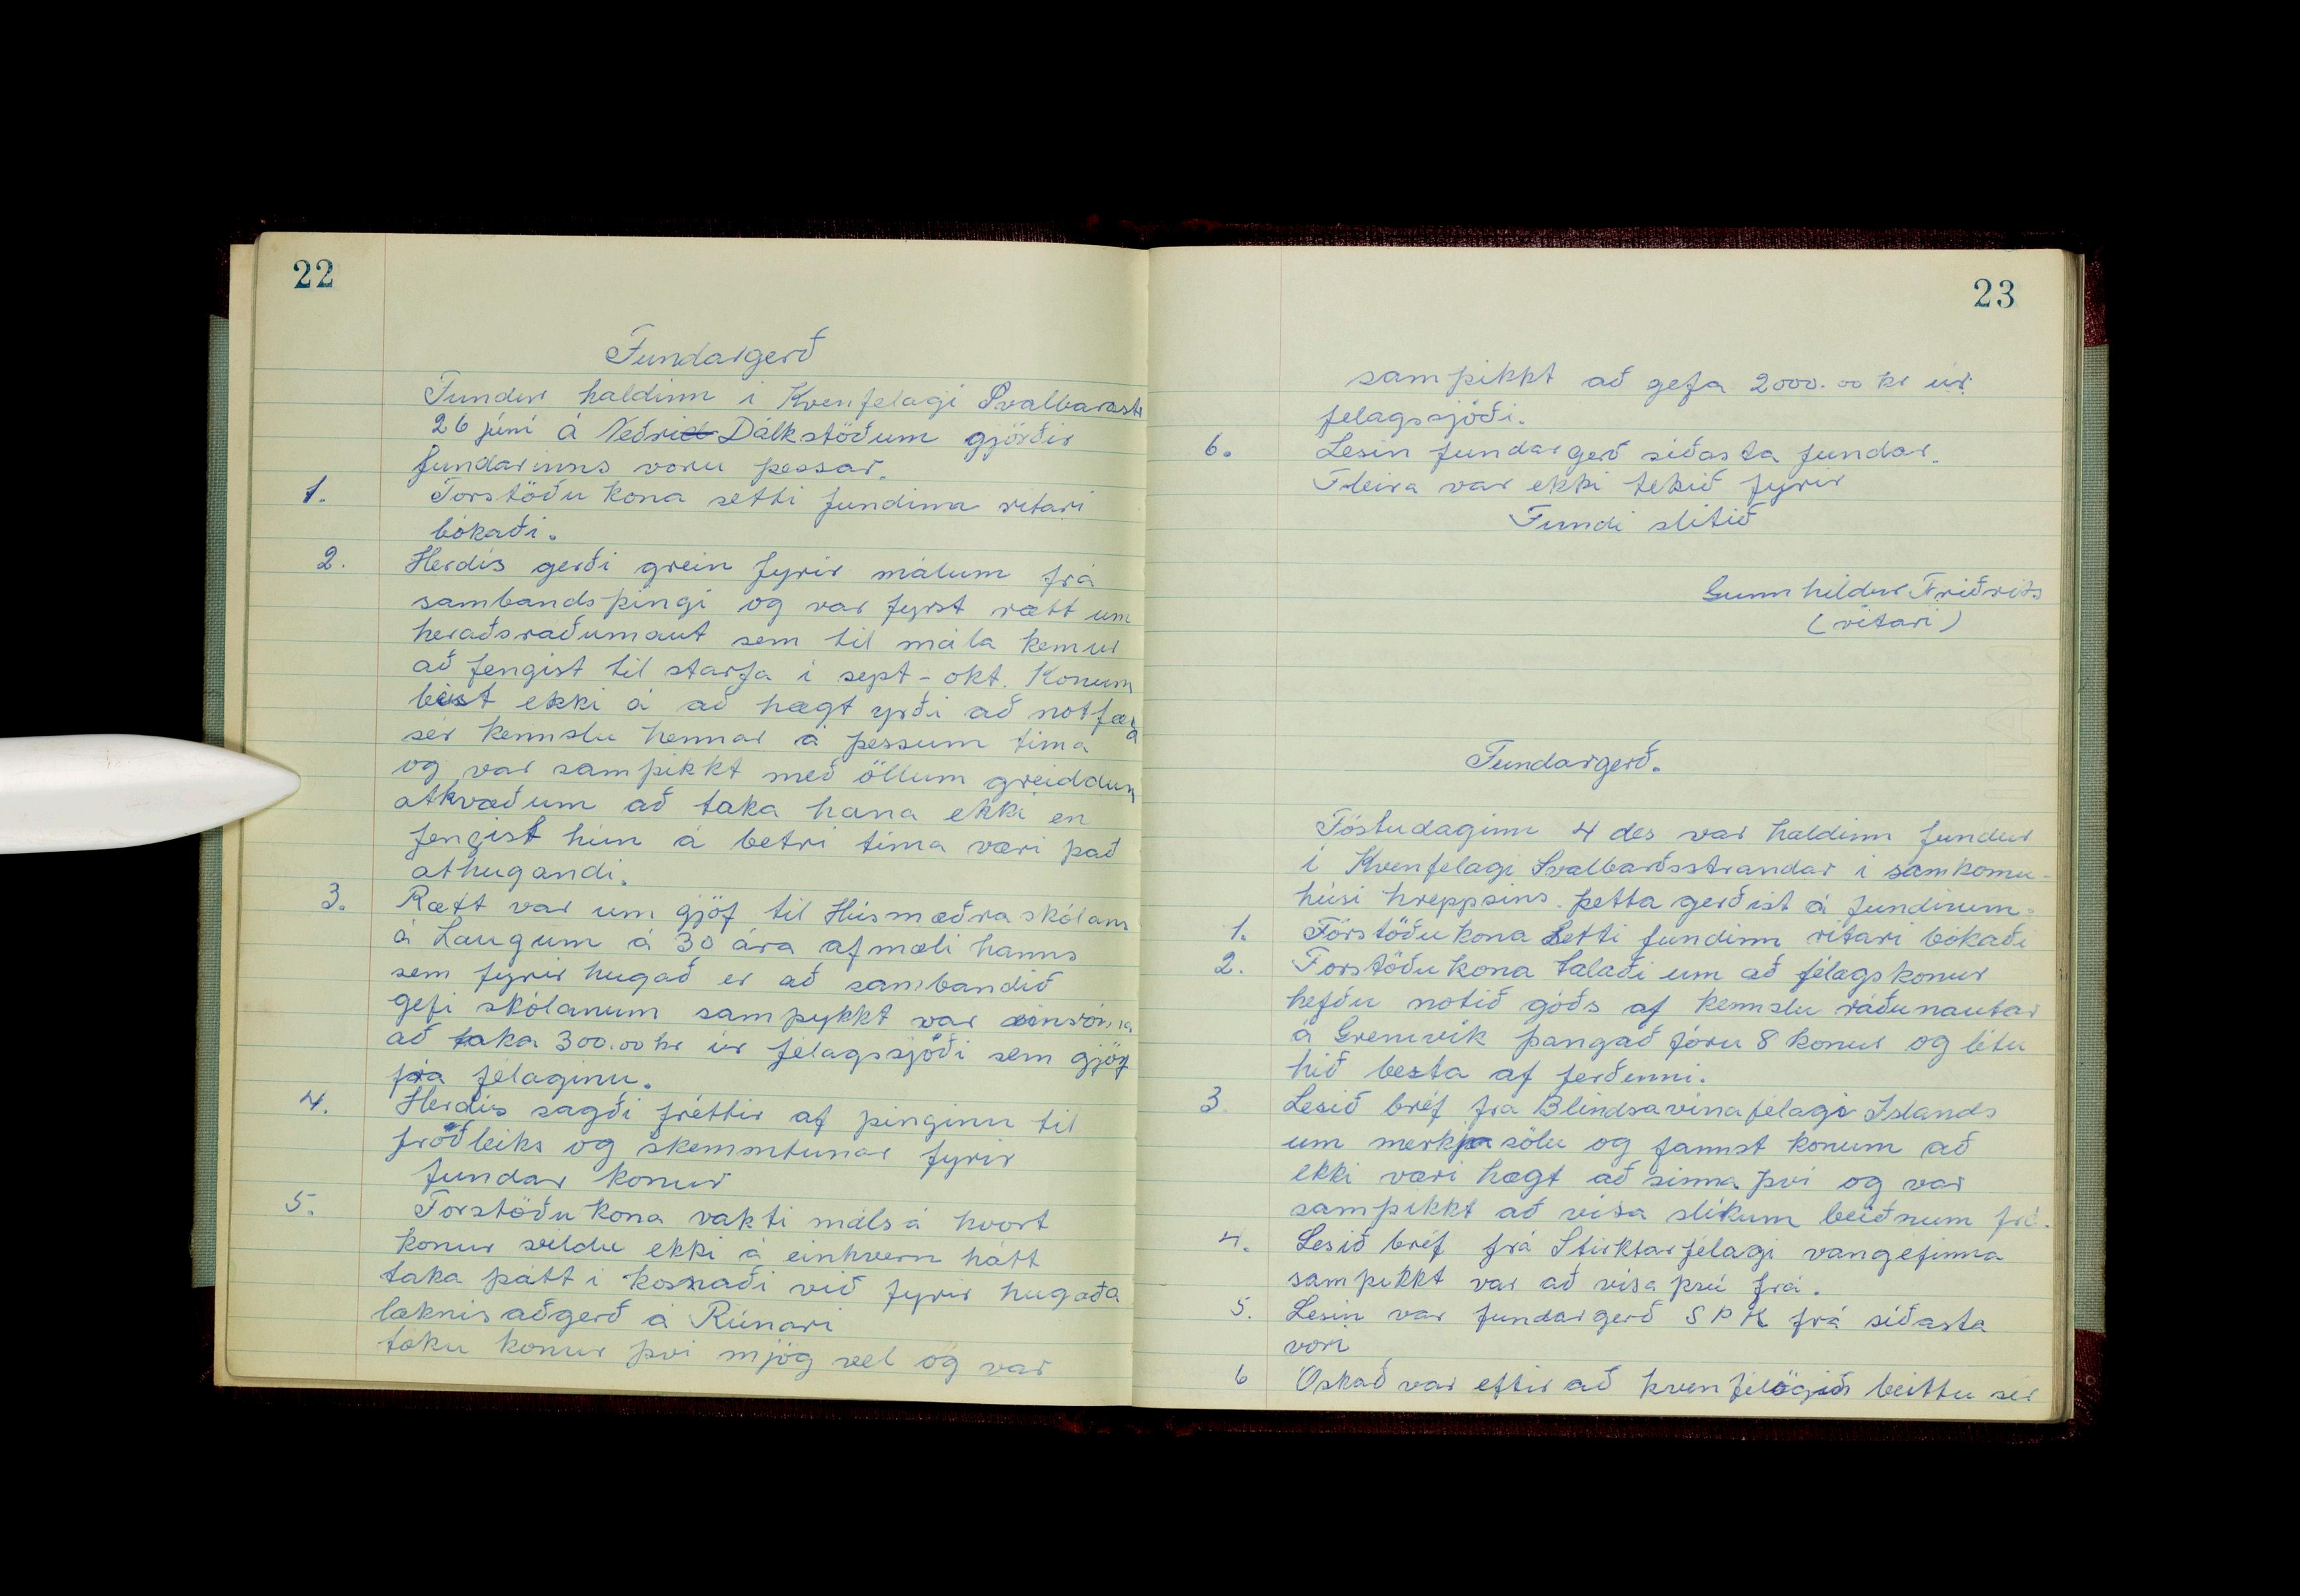 22
Fundargerð
Fundur haldinn i Kvenfelagi Svalbarðsstr
26 júni á Neðri Dálkstöðum gjörðir
fundarinns voru þessar.
1. Forstöðu kona setti fundinn ritari
bókaði.
2. Herdis gerði grein fyrir málum frá
sambandsþingi og var fyrst rætt um
heraðsraðunaut sem til mála kemur
að fengist til starfa i sept - okt. Konum
leist ekki á að hægt yrði að notfæra
sér kennslu hennar á þessum tima
og var samþikkt með öllum greiddum
atkvæðum að taka hana ekki en
fengist hún á betri tima væri það
athugandi.
3. Rætt var um gjöf til Húsmæðra skólans
á Laugum á 30 ára afmæli hanns
sem fyrir hugað er að sambandið
gefi skólanum samþykkt var einróma
að taka 300.00 kr úr félagssjóði sem gjöf
frá félaginu.
4. Herdis sagði fréttir af þinginu til
fróðleiks og skemmtunar fyrir
fundar konur
5. Forstöðu kona vakti máls á hvort
konur vildu ekki á einhvern hátt
taka þátt i kosnaði við fyrir hugaða
læknisaðgerð á Rúnari
tóku konur þvi mjög vel og var
23
samþikkt að gefa 2000.00 kr úr
felagssjóði.
6. Lesin fundargerð siðasta fundar.
Fleira var ekki tekið fyrir
Fundi slitið
Gunnhildur Friðriks
(ritari)
Fundargerð.
Föstudaginn 4 des var haldinn fundur
i Kvenfelagi Svalbarðsstrandar i samkomu-
húsi hreppsins. þetta gerðist á fundinum:
1. Förstöðu kona setti fundinn ritari bókaði
2. Forstöðu kona talaði um að félagskonur
hefðu notið góðs af kennslu ráðunautar
á Grenivík þangað fóru 8 konur og létu
hið besta af ferðinni.
3 Lesið bréf frá Blindravinafélagi Islands
um merkjasölu og fannst konum að
ekki væri hægt að sinna þvi og var
samþikkt að visa slikum beiðnum frá.
4. Lesið bréf frá Stirktarfélagi vangefinna
samþikkt var að visa þvi frá.
5. Lesin var fundargerð S P K frá síðasta
vori
6 Óskað var eftir að kvenfélögin beittu ser